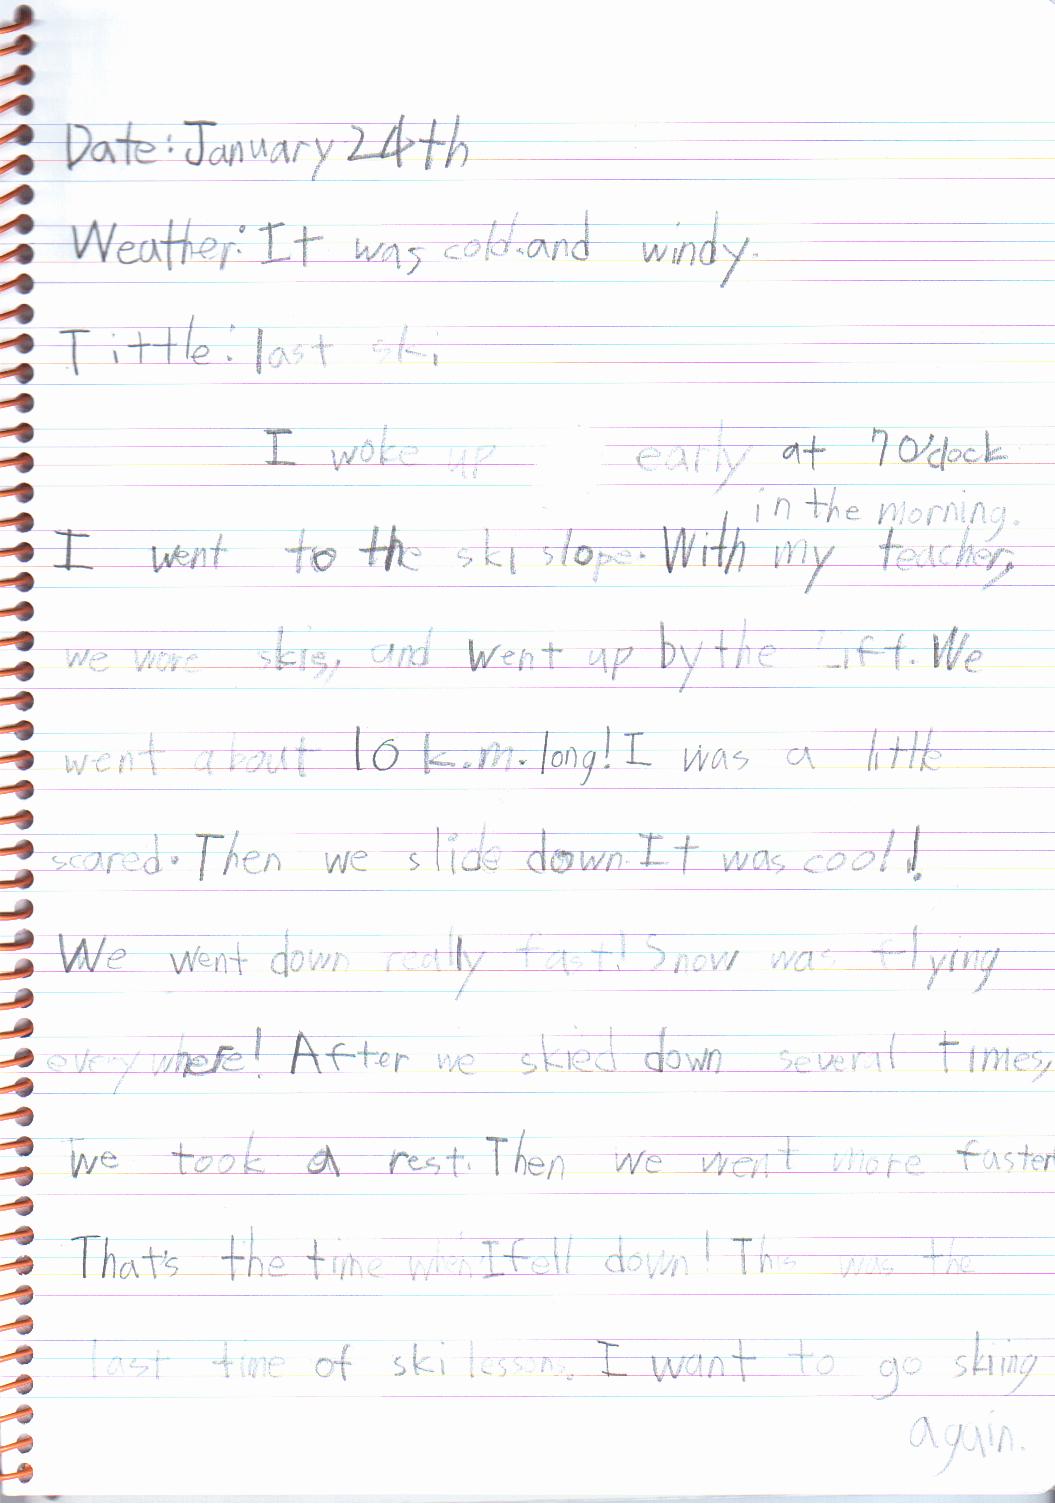 Date: January 24th
Weather: It was cold and windy.
Tittle: last ski
I woke up early at 7 O'clock
in the morning.
I went to the ski slope. With my teacher,
we wore skis, and went up by the Lift. We
went about 10 k.m. long! I was a little
scared. Then we slide down. It was cool!
We went down really fast! Snow was flying
everywhere! After we skied down several times,
we took a rest. Then we went more faster
That's the time when I fell down! This was the
last time of ski lessons. I want to go skiing
again.